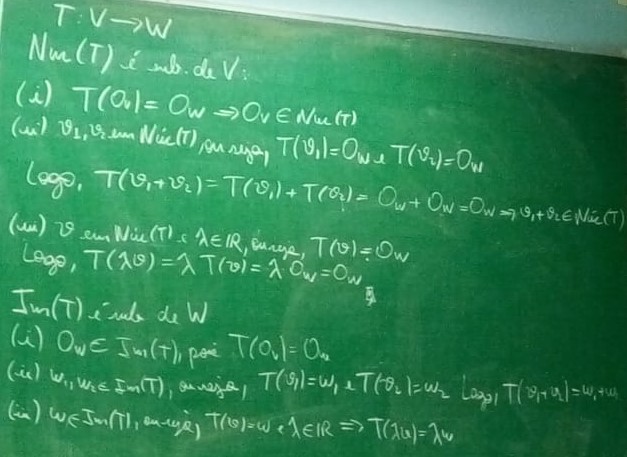 T: V → W
Nuc(T) é sub. de V:
(i) T(0v) = 0w ⇒ 0v ∈ Nuc(T)
(ii) v1, v2 em Núc(T), ou seja, T(v1) = 0w e T(v2) = 0w
Logo, T(v1 + v2) = T(v1) + T(v2) = 0w + 0w = 0w ⇒ v1 + v2 ∈ Núc(T)
(iii) v em Núc(T) e λ ∈ IR, ou seja, T(v) = 0w
Logo, T(λv) = λ T(v) = λ 0w = 0w
Im(T) é sub de W
(i) 0w ∈ Im(T), pois T(0v) = 0w
(ii) w1, w2 ∈ Im(T), ou seja, T(v1) = w1 e T(v2) = w2 Logo, T(v1 + v2) = w1 + w2
(iii) w ∈ Im(T), ou seja, T(v) = w e λ ∈ IR ⇒ T(λv) = λw